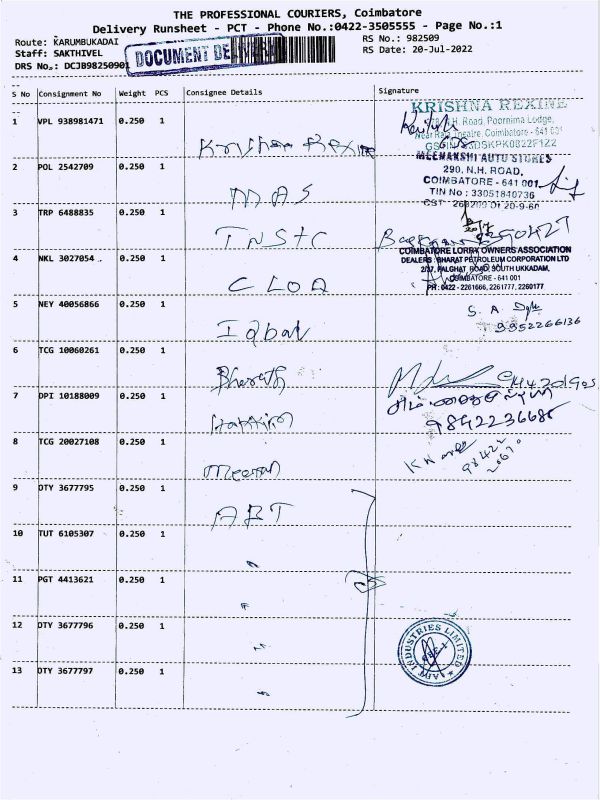 THE PROFESSIONAL COURIERS, Coimbatore
Delivery Runsheet - PCT - Phone No.:0422-3505555 - Page No.:1
Route: KARUMBUKADAI RS No.: 982509
Staff: SAKTHIVEL RS Date: 20-Jul-2022
DRS No.: DCJB9825090
DOCUMENT
S No Consignment No Weight PCS Consignee Details Signature
KRISHNA REXINE
1 VPL 938981471 0.250 1 Krishna Rexine
N.H. Road, Poornima Lodge,
Coimbatore - 641 001
MEENAKSHI AUTO STORES
2 POL 2542709 0.250 1 MAS
290, N.H. ROAD,
COIMBATORE - 641 001
TIN No : 33051840736
3 TRP 6488835 0.250 1 TNSTC
COIMBATORE LORRY OWNERS ASSOCIATION
4 NKL 3027054 0.250 1 CLOA
DEALERS : BHARAT PETROLEUM CORPORATION LTD
2/37, PALGHAT ROAD, SOUTH UKKADAM,
COIMBATORE - 641 001
PH : 0422 - 2261666, 2261777, 2260177
5 NEY 40056866 0.250 1 Iqbal
S. A
9952266136
6 TCG 10060261 0.250 1 Bharath
7 DPI 10188009 0.250 1
9842236686
8 TCG 20027108 0.250 1 Meeran
9 OTY 3677795 0.250 1 ART
10 TUT 6105307 0.250 1 "
11 PGT 4413621 0.250 1 "
12 OTY 3677796 0.250 1 "
INDUSTRIES LIMITED
13 OTY 3677797 0.250 1 "